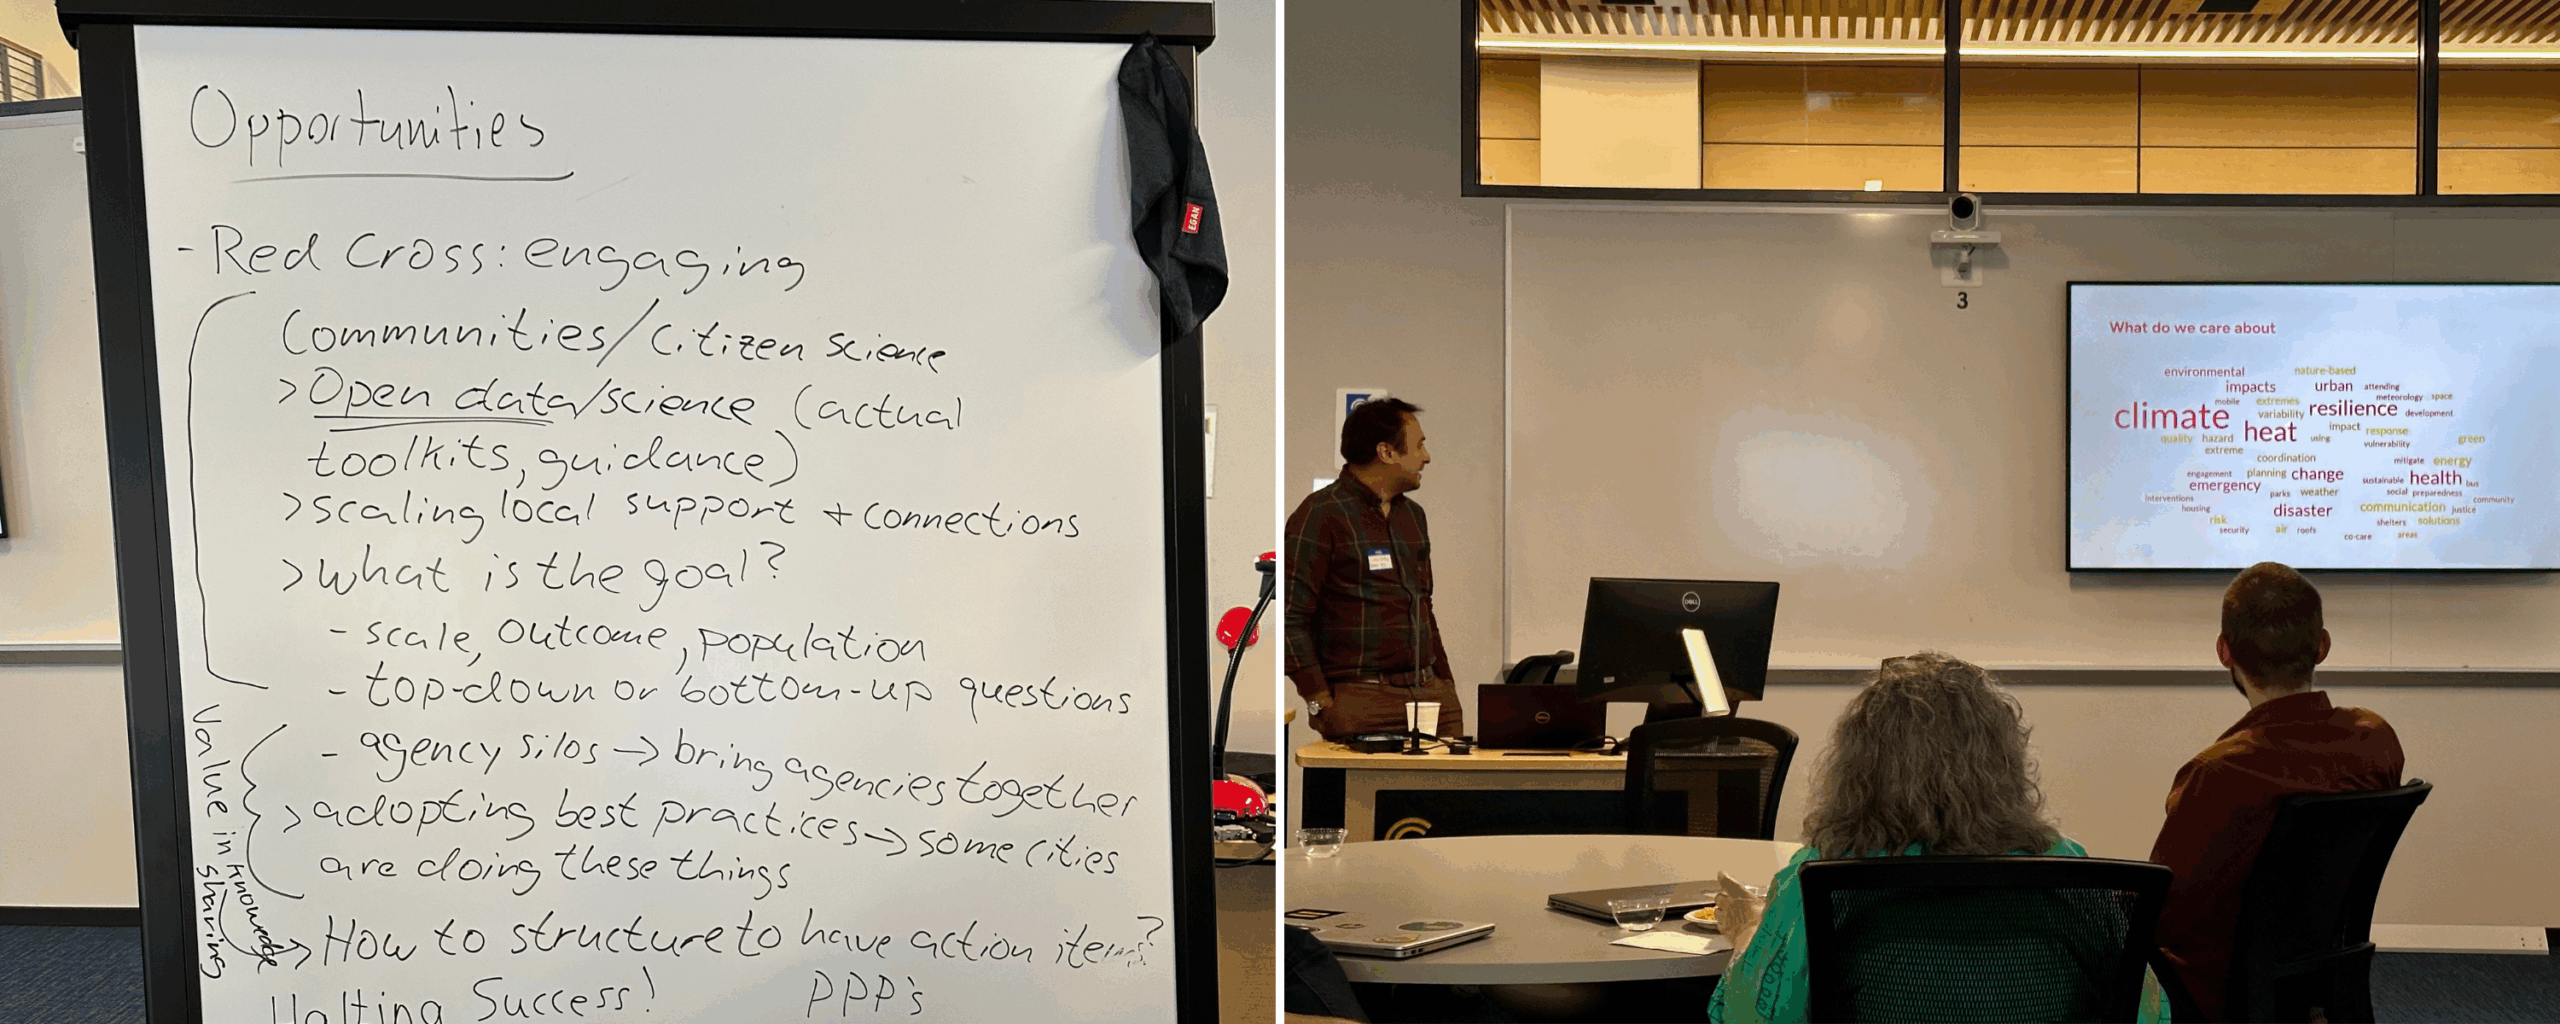 Opportunities
- Red Cross: engaging
Communities/citizen science
> Open data/science (actual
toolkits, guidance)
> scaling local support + connections
> what is the goal?
- scale, outcome, population
- top-down or bottom-up questions
- agency silos → bring agencies together
> adopting best practices → some cities
are doing these things
> How to structure to have action items?
Halting Success! PPP's
Value in knowledge
sharing
EGAN
3
What do we care about
environmental nature-based
impacts urban attending
mobile extremes meteorology space
climate variability resilience development
quality hazard heat using impact response
vulnerability green
extreme
coordination mitigate energy
engagement planning change sustainable health bus
emergency parks weather social preparedness
interventions community
housing disaster communication justice
risk shelters solutions
security air roofs
co-care areas
DELL